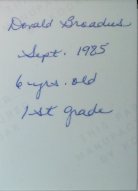 Donald Broadus
Sept. 1985
6 yrs. old
1st grade